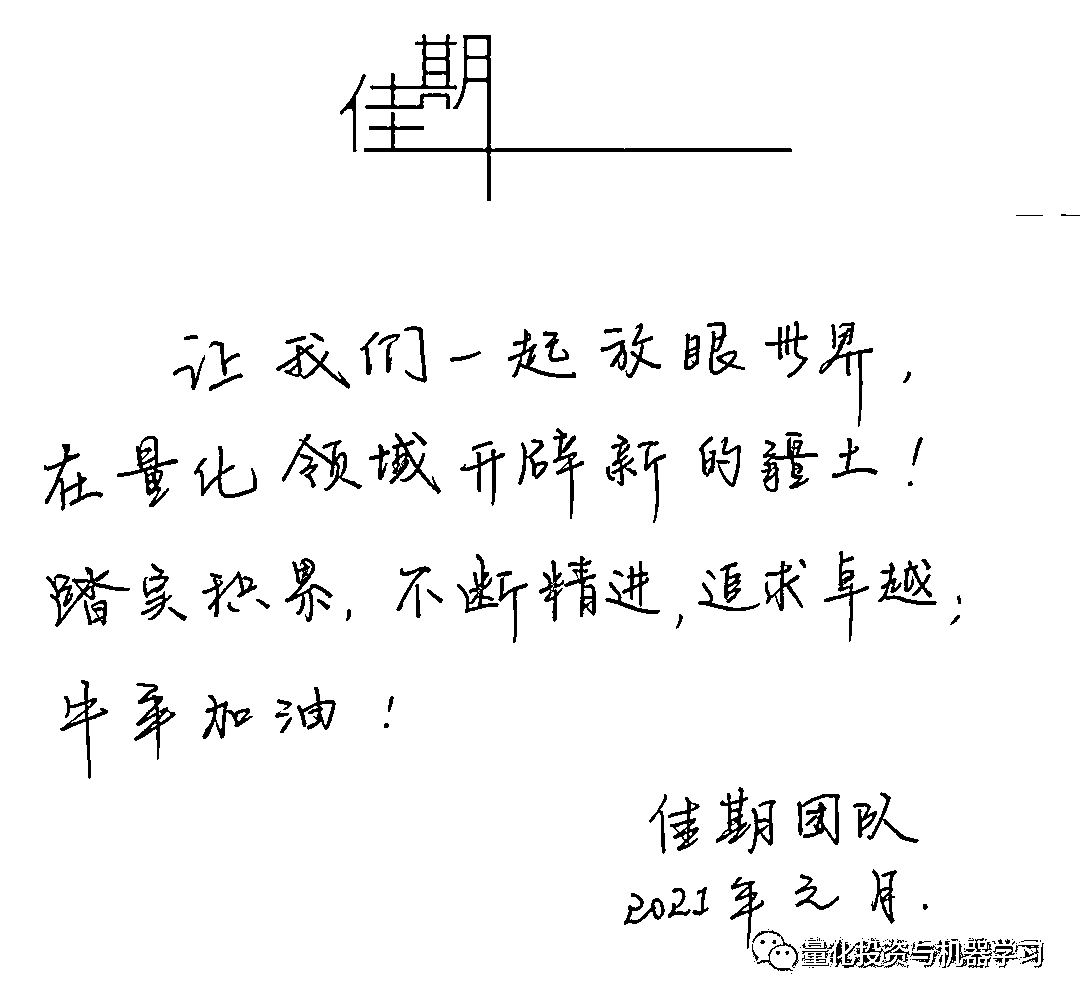 佳期
让我们一起放眼世界,
在量化领域开辟新的疆土!
踏实积累,不断精进,追求卓越;
牛年加油!
佳期团队
2021年元月.
量化投资与机器学习